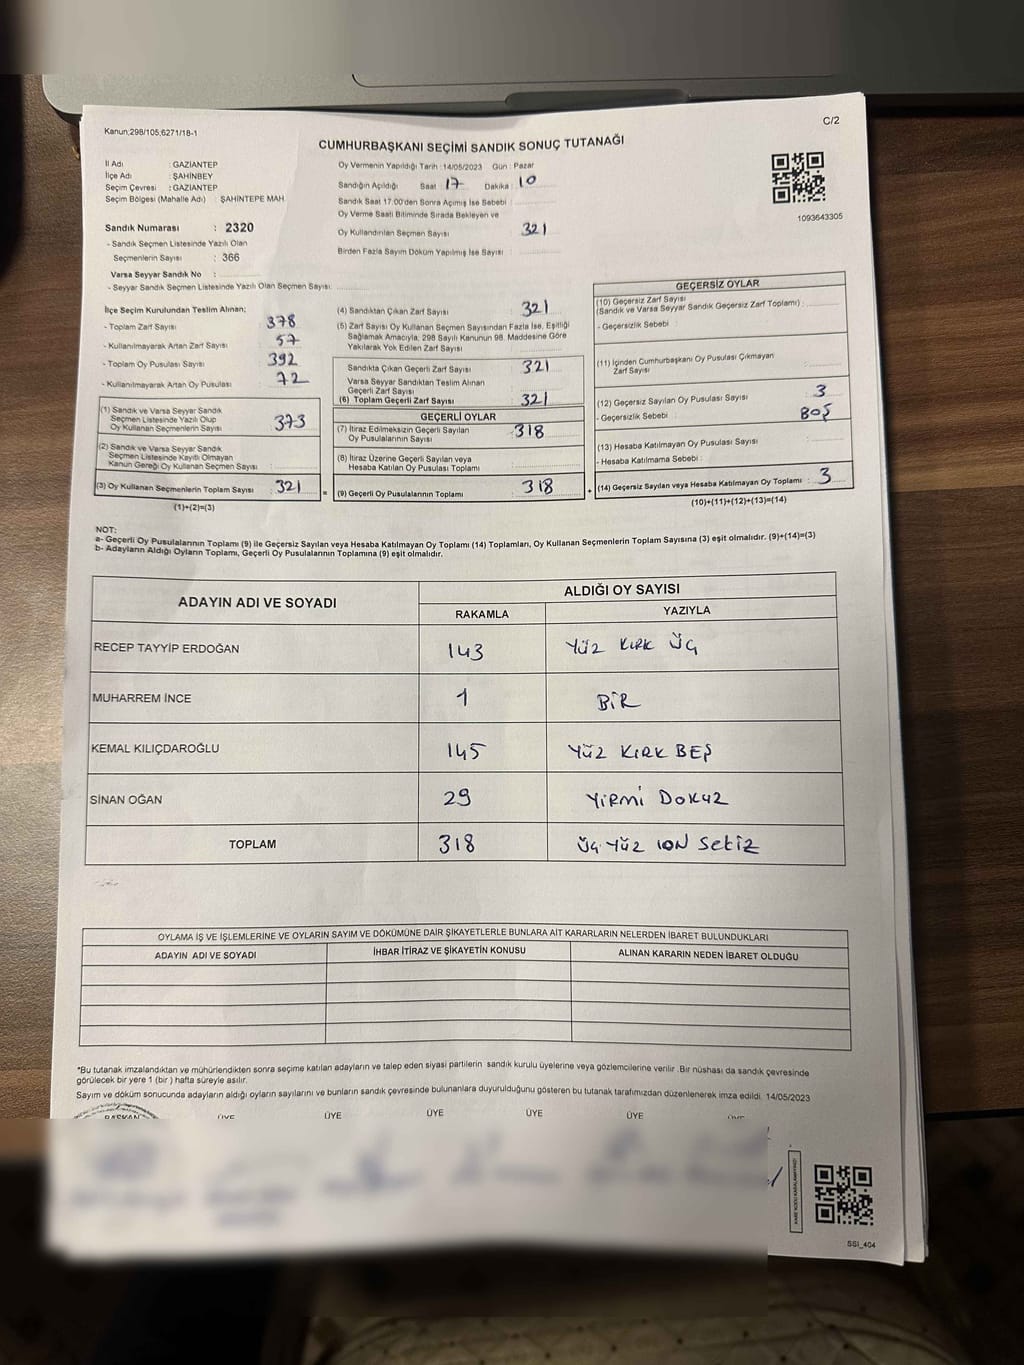 Kanun,298/105,6271/18-1
C/2
CUMHURBAŞKANI SEÇİMİ SANDIK SONUÇ TUTANAĞI
İl Adı : GAZIANTEP
İlçe Adı : ŞAHİNBEY
Seçim Çevresi : GAZIANTEP
Seçim Bölgesi (Mahalle Adı) : ŞAHİNTEPE MAH
Sandık Numarası : 2320
- Sandık Seçmen Listesinde Yazılı Olan
Seçmenlerin Sayısı : 366
Varsa Seyyar Sandık No :
- Seyyar Sandık Seçmen Listesinde Yazılı Olan Seçmen Sayısı:
Oy Vermenin Yapıldığı Tarih : 14/05/2023 Gün : Pazar
Sandığın Açıldığı Saat 17 Dakika : 10
Sandık Saat 17.00'den Sonra Açımış İse Sebebi :
Oy Verme Saati Bitiminde Sırada Bekleyen ve
Oy Kullandırılan Seçmen Sayısı : 321
Birden Fazla Sayım Döküm Yapılmış İse Sayısı :
1093643305
İlçe Seçim Kurulundan Teslim Alınan;
- Toplam Zarf Sayısı : 378
- Kullanılmayarak Artan Zarf Sayısı : 57
- Toplam Oy Pusulası Sayısı : 392
- Kullanılmayarak Artan Oy Pusulası : 72
(1) Sandık ve Varsa Seyyar Sandık
Seçmen Listesinde Yazılı Olup
Oy Kullanan Seçmenlerin Sayısı : 373
(2) Sandık ve Varsa Seyyar Sandık
Seçmen Listesinde Kayıtlı Olmayan
Kanun Gereği Oy Kullanan Seçmen Sayısı :
(3) Oy Kullanan Seçmenlerin Toplam Sayısı : 321
(1)+(2)=(3)
=
(4) Sandıktan Çıkan Zarf Sayısı : 321
(5) Zarf Sayısı Oy Kullanan Seçmen Sayısından Fazla İse, Eşitliği
Sağlamak Amacıyla, 298 Sayılı Kanunun 98. Maddesine Göre
Yakılarak Yok Edilen Zarf Sayısı
Sandıkta Çıkan Geçerli Zarf Sayısı : 321
Varsa Seyyar Sandıktan Teslim Alınan
Geçerli Zarf Sayısı
(6) Toplam Geçerli Zarf Sayısı : 321
GEÇERLİ OYLAR
(7) İtiraz Edilmeksizin Geçerli Sayılan
Oy Pusulalarının Sayısı : 318
(8) İtiraz Üzerine Geçerli Sayılan veya
Hesaba Katılan Oy Pusulası Toplamı
(9) Geçerli Oy Pusulalarının Toplamı : 318
+
GEÇERSİZ OYLAR
(10) Geçersiz Zarf Sayısı
(Sandık ve Varsa Seyyar Sandık Geçersiz Zarf Toplamı) :
- Geçersizlik Sebebi :
(11) İçinden Cumhurbaşkanı Oy Pusulası Çıkmayan
Zarf Sayısı :
(12) Geçersiz Sayılan Oy Pusulası Sayısı : 3
- Geçersizlik Sebebi : BOŞ
(13) Hesaba Katılmayan Oy Pusulası Sayısı
- Hesaba Katılmama Sebebi :
(14) Geçersiz Sayılan veya Hesaba Katılmayan Oy Toplamı : 3
(10)+(11)+(12)+(13)=(14)
NOT:
a- Geçerli Oy Pusulalarının Toplamı (9) ile Geçersiz Sayılan veya Hesaba Katılmayan Oy Toplamı (14) Toplamları, Oy Kullanan Seçmenlerin Toplam Sayısına (3) eşit olmalıdır. (9)+(14)=(3)
b- Adayların Aldığı Oyların Toplamı, Geçerli Oy Pusulalarının Toplamına (9) eşit olmalıdır.
ADAYIN ADI VE SOYADI
ALDIĞI OY SAYISI
RAKAMLA YAZIYLA
RECEP TAYYİP ERDOĞAN 143 YÜZ KIRK ÜÇ
MUHARREM İNCE 1 BİR
KEMAL KILIÇDAROĞLU 145 YÜZ KIRK BEŞ
SİNAN OĞAN 29 YİRMİ DOKUZ
TOPLAM 318 ÜÇ YÜZ ION SEKİZ
OYLAMA İŞ VE İŞLEMLERİNE VE OYLARIN SAYIM VE DÖKÜMÜNE DAİR ŞİKAYETLERLE BUNLARA AİT KARARLARIN NELERDEN İBARET BULUNDUKLARI
ADAYIN ADI VE SOYADI İHBAR İTİRAZ VE ŞİKAYETİN KONUSU ALINAN KARARIN NEDEN İBARET OLDUĞU
*Bu tutanak imzalandıktan ve mühürlendikten sonra seçime katılan adayların ve talep eden siyasi partilerin sandık kurulu üyelerine veya gözlemcilerine verilir .Bir nüshası da sandık çevresinde
görülecek bir yere 1 (bir ) hafta süreyle asılır.
Sayım ve döküm sonucunda adayların aldığı oyların sayılarını ve bunların sandık çevresinde bulunanlara duyurulduğunu gösteren bu tutanak tarafımızdan düzenlenerek imza edildi. 14/05/2023
BAŞKAN ÜYE ÜYE ÜYE ÜYE ÜYE ÜYE
SSI_404